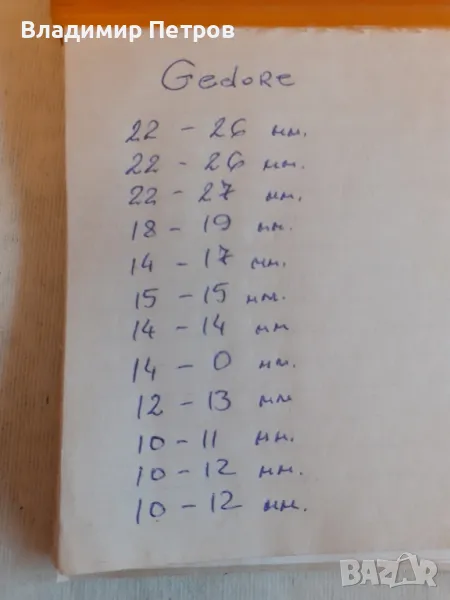 Владимир Петров
Gedore
22 - 26 мм.
22 - 26 мм.
22 - 27 мм.
18 - 19 мм.
14 - 17 мм.
15 - 15 мм.
14 - 14 мм
14 - 0 мм.
12 - 13 мм
10 - 11 мм.
10 - 12 мм.
10 - 12 мм.
BAZAR